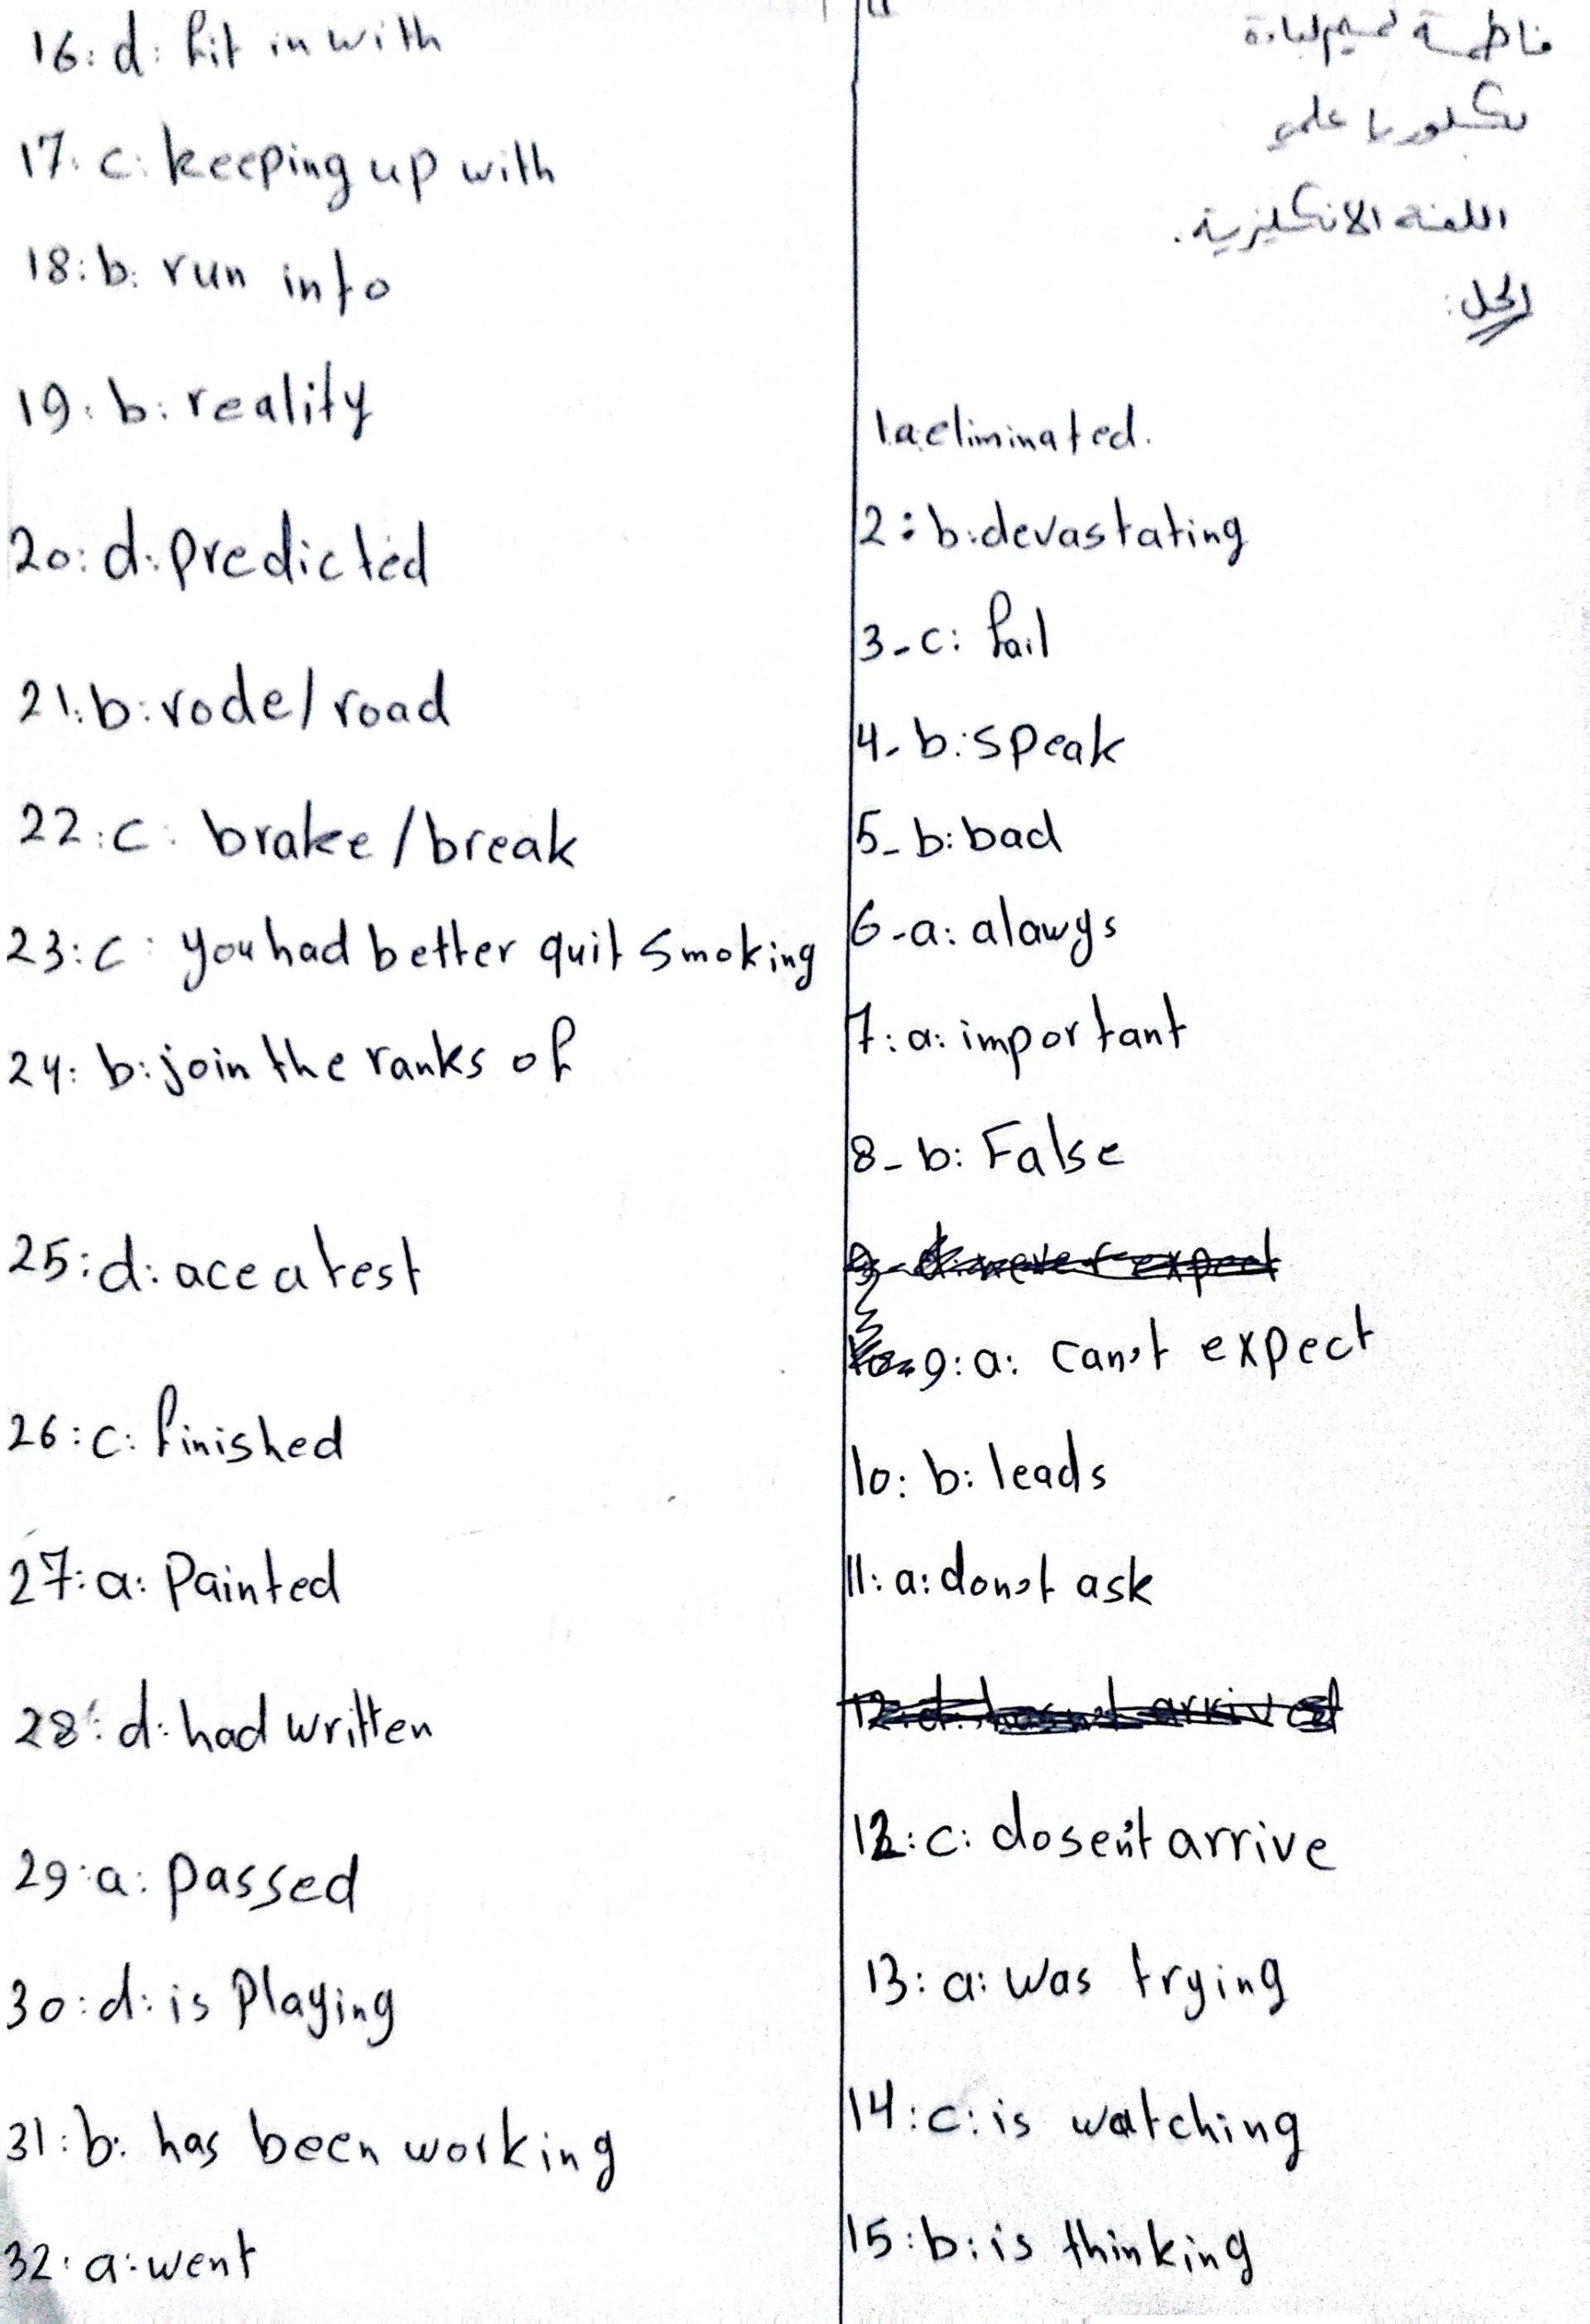 فاطمة تميم لبادة
بكلوريا علمي
اللغة الانكليزية.
الحل:
1.a eliminated.
2: b: devastating
3-c: fail
4- b: speak
5- b: bad
6-a: alawys
7: a: important
8- b: False
9: a: can't expect
10: b: leads
11: a: don't ask
12: c: dosen't arrive
13: a: was trying
14: c: is watching
15: b: is thinking
16: d: fit in with
17: c: keeping up with
18: b: run into
19: b: reality
20: d: predicted
21: b: rode/road
22: c: brake/break
23: c: you had better quit smoking
24: b: join the ranks of
25: d: ace a test
26: c: finished
27: a: Painted
28: d: had written
29: a: passed
30: d: is Playing
31: b: has been working
32: a: went